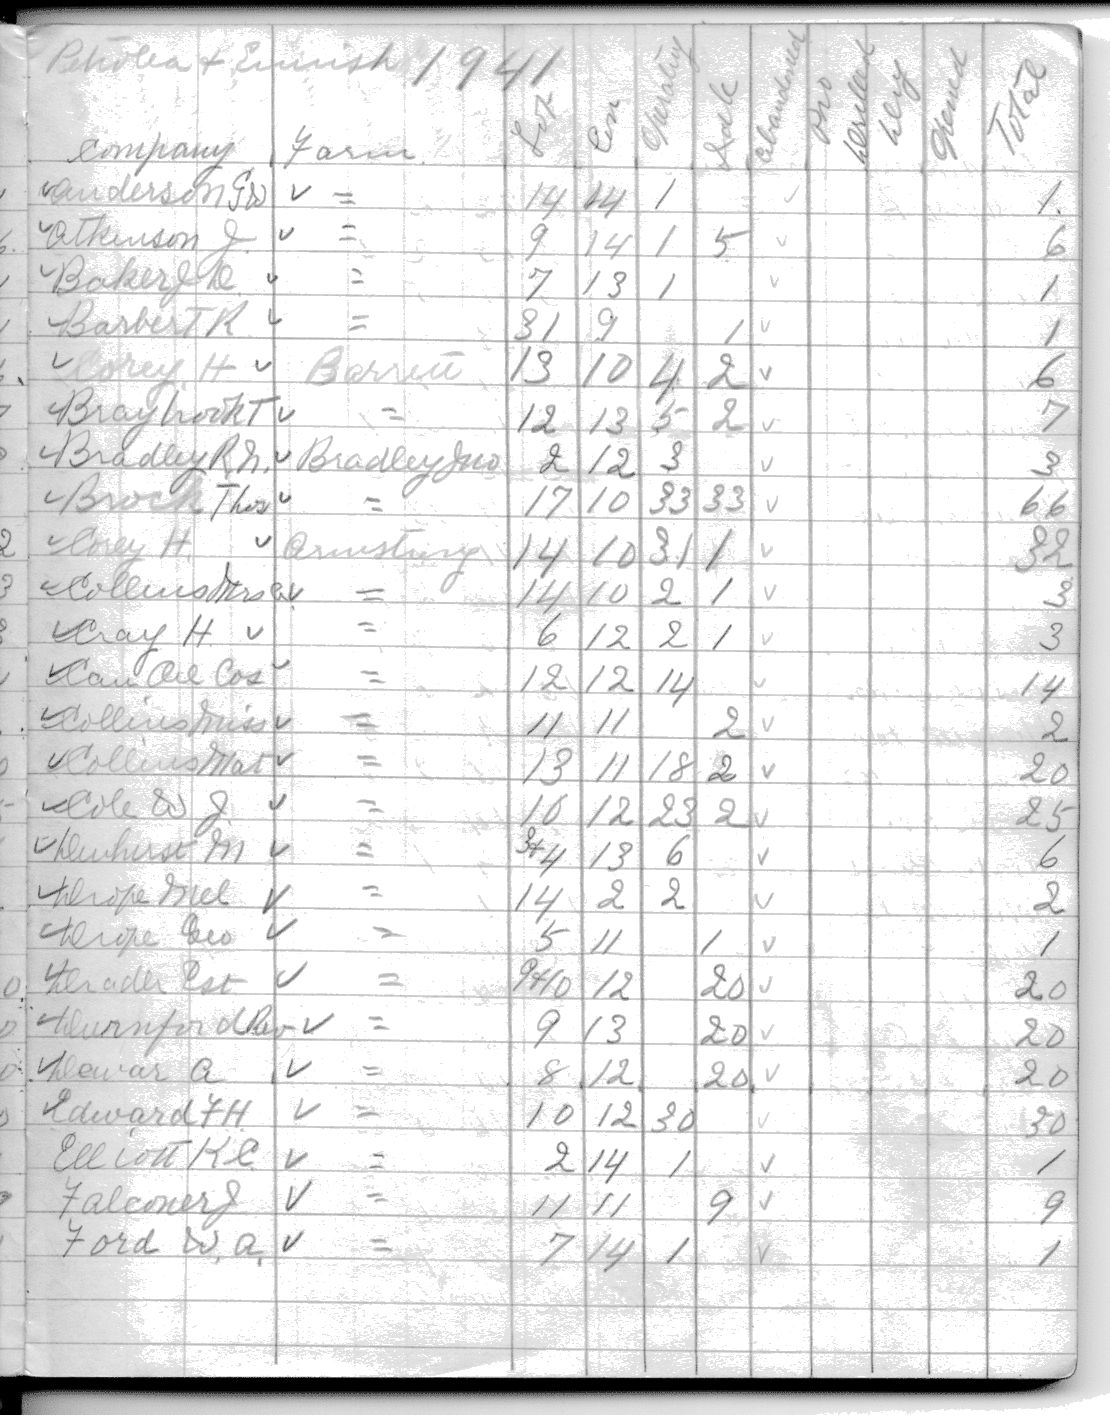 Petrolea & Ennish 1941
Company Farm Lot Con Operating Idle Abandoned Pro Drilled Dry Opened Total
✓ Anderson GW ✓ = 14 14 1 ✓ 1.
✓ Atkinson J. ✓ = 9 14 1 5 ✓ 6
✓ Baker J D. ✓ = 7 13 1 ✓ 1
✓ Barbert R ✓ = 31 9 1 ✓ 1
✓ Corey H ✓ Barrett 13 10 4 2 ✓ 6
✓ Braybrook T ✓ = 12 13 5 2 ✓ 7
✓ Bradley R. ✓ Bradley Jno 2 12 3 ✓ 3
✓ Brock Thos ✓ = 17 10 33 33 ✓ 66
✓ Corey H. ✓ Armstrong 14 10 31 1 ✓ 32
✓ Collins Mrs ✓ = 14 10 2 1 ✓ 3
✓ Cray H. ✓ = 6 12 2 1 ✓ 3
✓ Can Oil Cos ✓ = 12 12 14 ✓ 14
✓ Collins Miss ✓ = 11 11 2 ✓ 2
✓ Collins Mat ✓ = 13 11 18 2 ✓ 20
✓ Cole W J. ✓ = 10 12 23 2 ✓ 25
✓ Dewhirst M ✓ = 3+4 13 6 ✓ 6
✓ Drope Mel ✓ = 14 2 2 ✓ 2
✓ Drope Geo ✓ = 5 11 1 ✓ 1
✓ Drader Est ✓ = 9+10 12 20 ✓ 20
✓ Durnford ✓ = 9 13 20 ✓ 20
✓ Dewar A ✓ = 8 12 20 ✓ 20
Edward F H. ✓ = 10 12 30 ✓ 30
Elliott K.C. ✓ = 2 14 1 ✓ 1
Falconer J ✓ = 11 11 9 ✓ 9
Ford W. A. ✓ = 7 14 1 ✓ 1